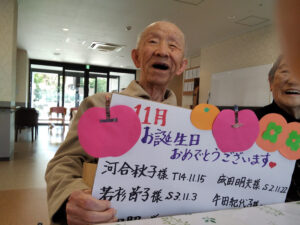 11月
お誕生日
おめでとうございます
河合秋子様 T14.11.15 成田明夫様 S2.11.22
若杉尚子様 S3.11.3 牛田